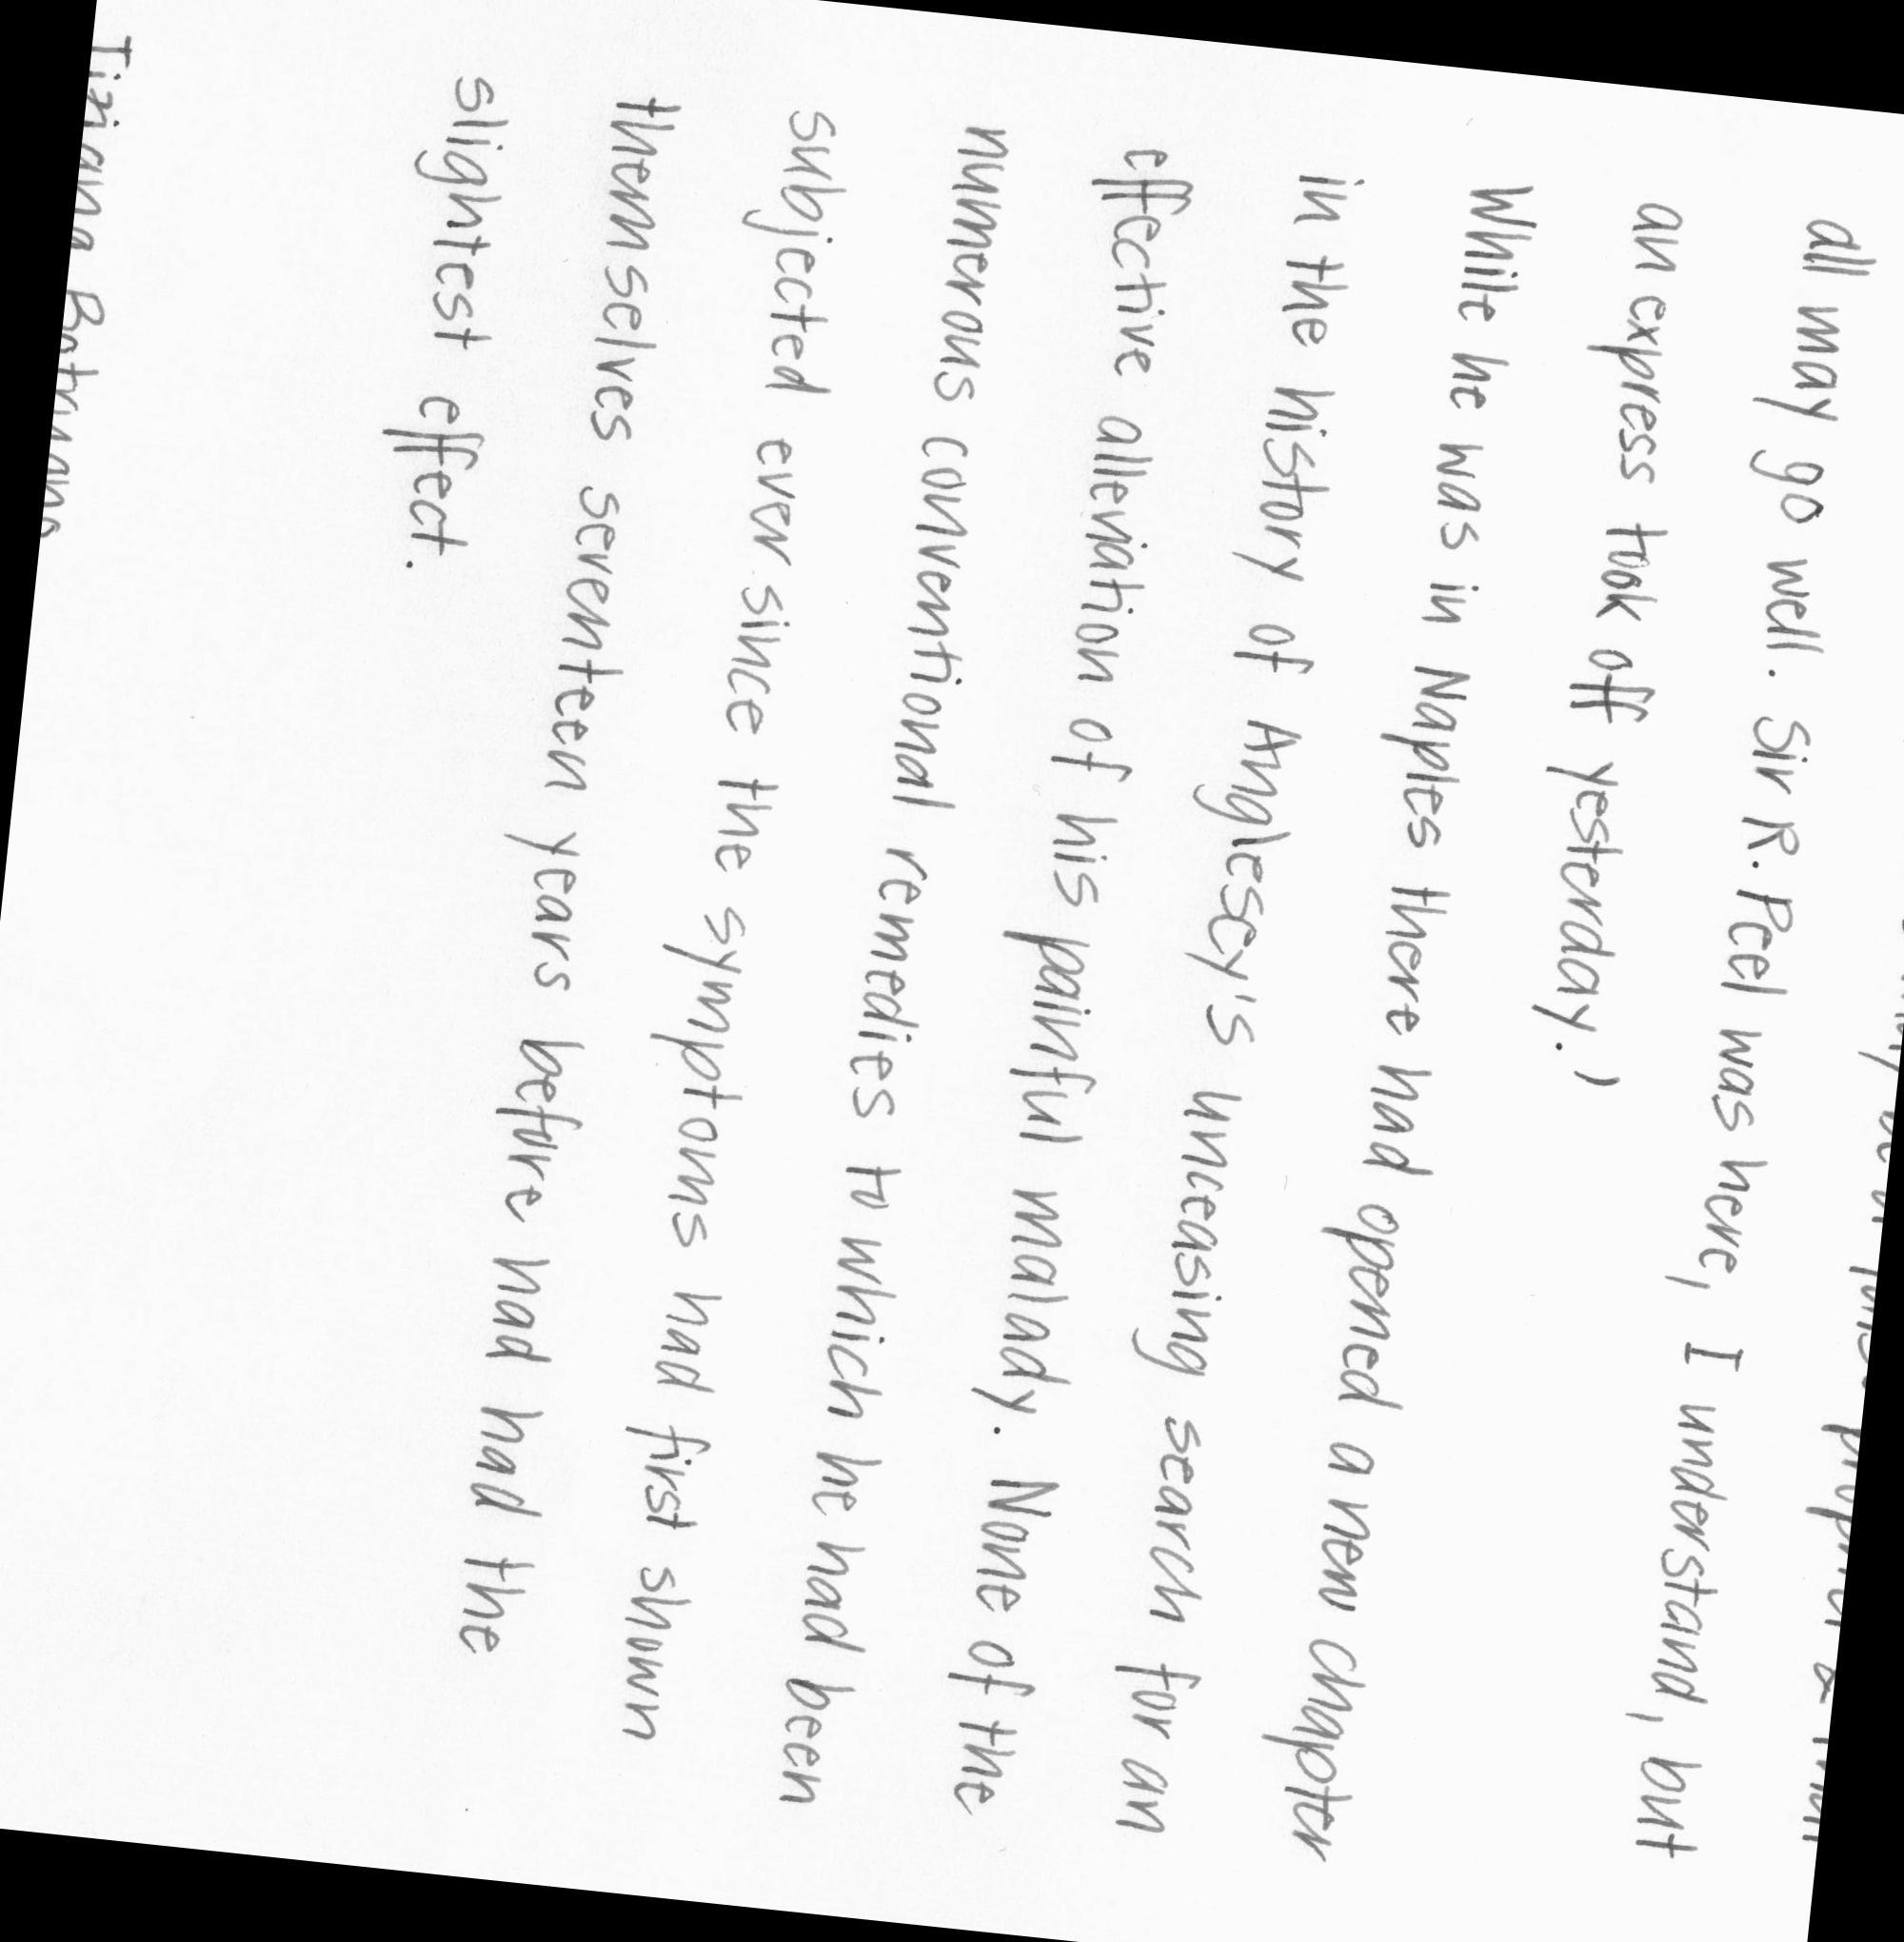 all may go well. Sir R. Peel was here, I understand, but
an express took off yesterday.'
While he was in Naples there had opened a new chapter
in the history of Anglesey's unceasing search for an
effective alleviation of his painful malady. None of the
numerous conventional remedies to which he had been
subjected ever since the symptoms had first shown
themselves seventeen years before had had the
slightest effect.